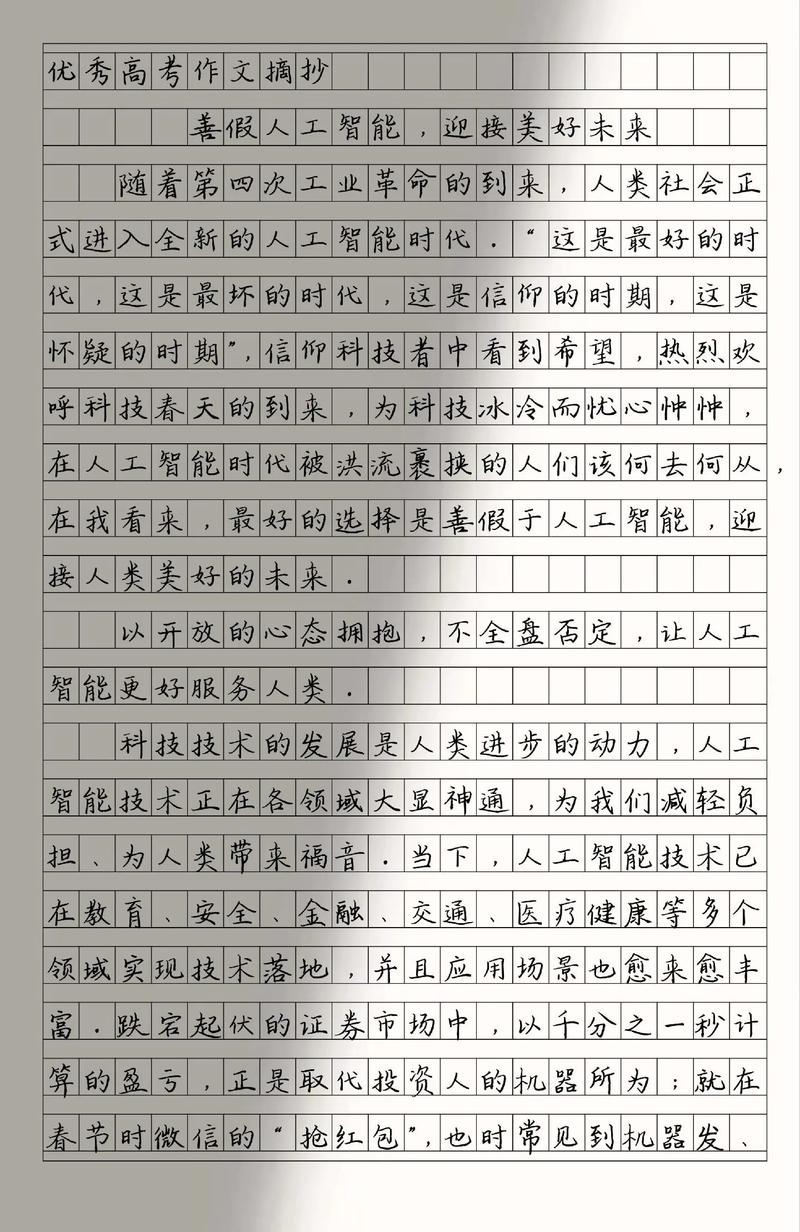 优秀高考作文摘抄
善假人工智能，迎接美好未来
随着第四次工业革命的到来，人类社会正
式进入全新的人工智能时代．“这是最好的时
代，这是最坏的时代，这是信仰的时期，这是
怀疑的时期”，信仰科技者中看到希望，热烈欢
呼科技春天的到来，为科技冰冷而忧心忡忡，
在人工智能时代被洪流裹挟的人们该何去何从，
在我看来，最好的选择是善假于人工智能，迎
接人类美好的未来．
以开放的心态拥抱，不全盘否定，让人工
智能更好服务人类．
科技技术的发展是人类进步的动力，人工
智能技术正在各领域大显神通，为我们减轻负
担、为人类带来福音．当下，人工智能技术已
在教育、安全、金融、交通、医疗健康等多个
领域实现技术落地，并且应用场景也愈来愈丰
富．跌宕起伏的证券市场中，以千分之一秒计
算的盈亏，正是取代投资人的机器所为；就在
春节时微信的“抢红包”，也时常见到机器发、